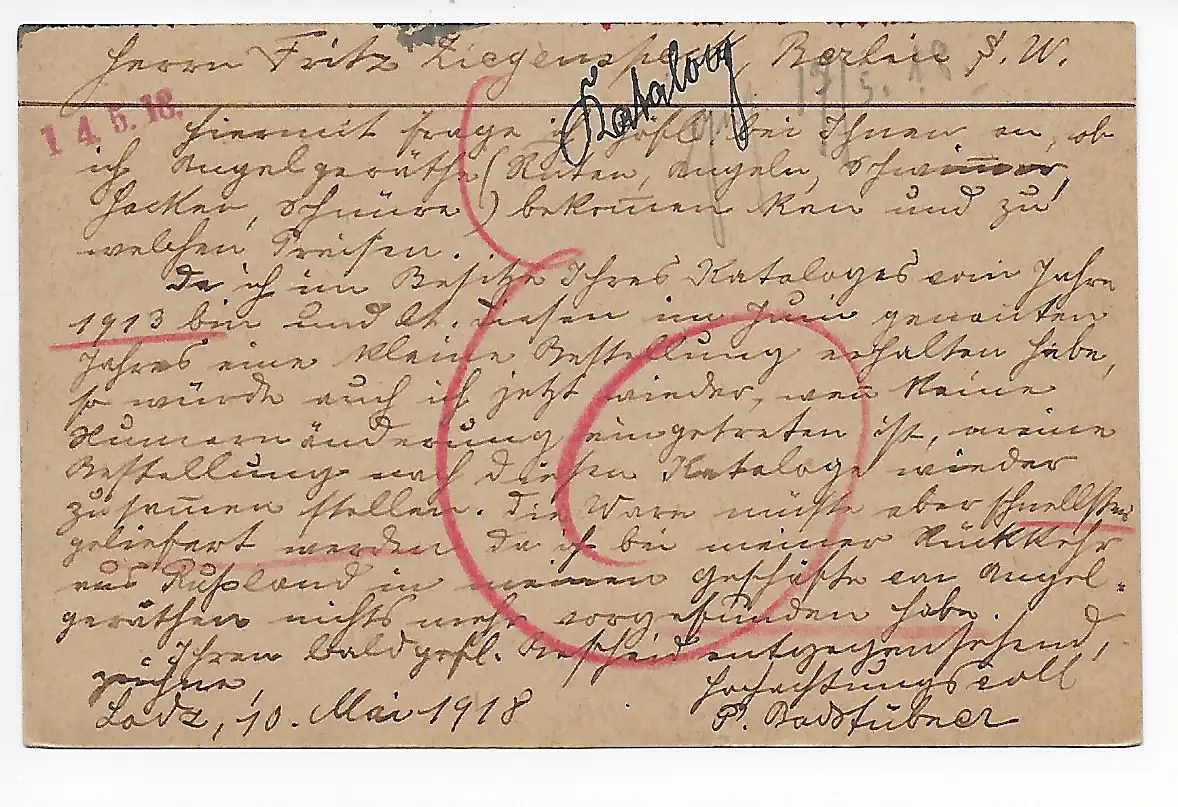 Herrn Fritz Ziegenspeck Berlin S. W.
Katalog
17/5. 18
14.5.18.
Hiermit frage ich gefl. bei Ihnen an, ob
ich Angelgeräthe (Ruten, Angeln, Schwimer,
Hacken, Schnüre) bekom̅en kan und zu
welchen Preisen.
Da ich im Besitze Ihres Kataloges vom Jahre
1913 bin und lt. diesen im Juni genanten
Jahres eine kleine Bestellung erhalten habe,
so würde auch ich jetzt wieder, wen̅ keine
Numern änderung eingetreten ist, meine
Bestellung nach diesen Kataloge wieder
zusam̅en stellen. Die Ware müßte aber schnellstens
geliefert werden da ich bei meiner Rückkehr
aus Rußland in meinen Geschäfte von Angel-
geräthen nichts mehr vorgefunden habe.
Ihren baldgefl. Bescheid entgegensehend,
zeichne,
Hochachtungsvoll
Lodz, 10. Mai 1918
P. Badstübner